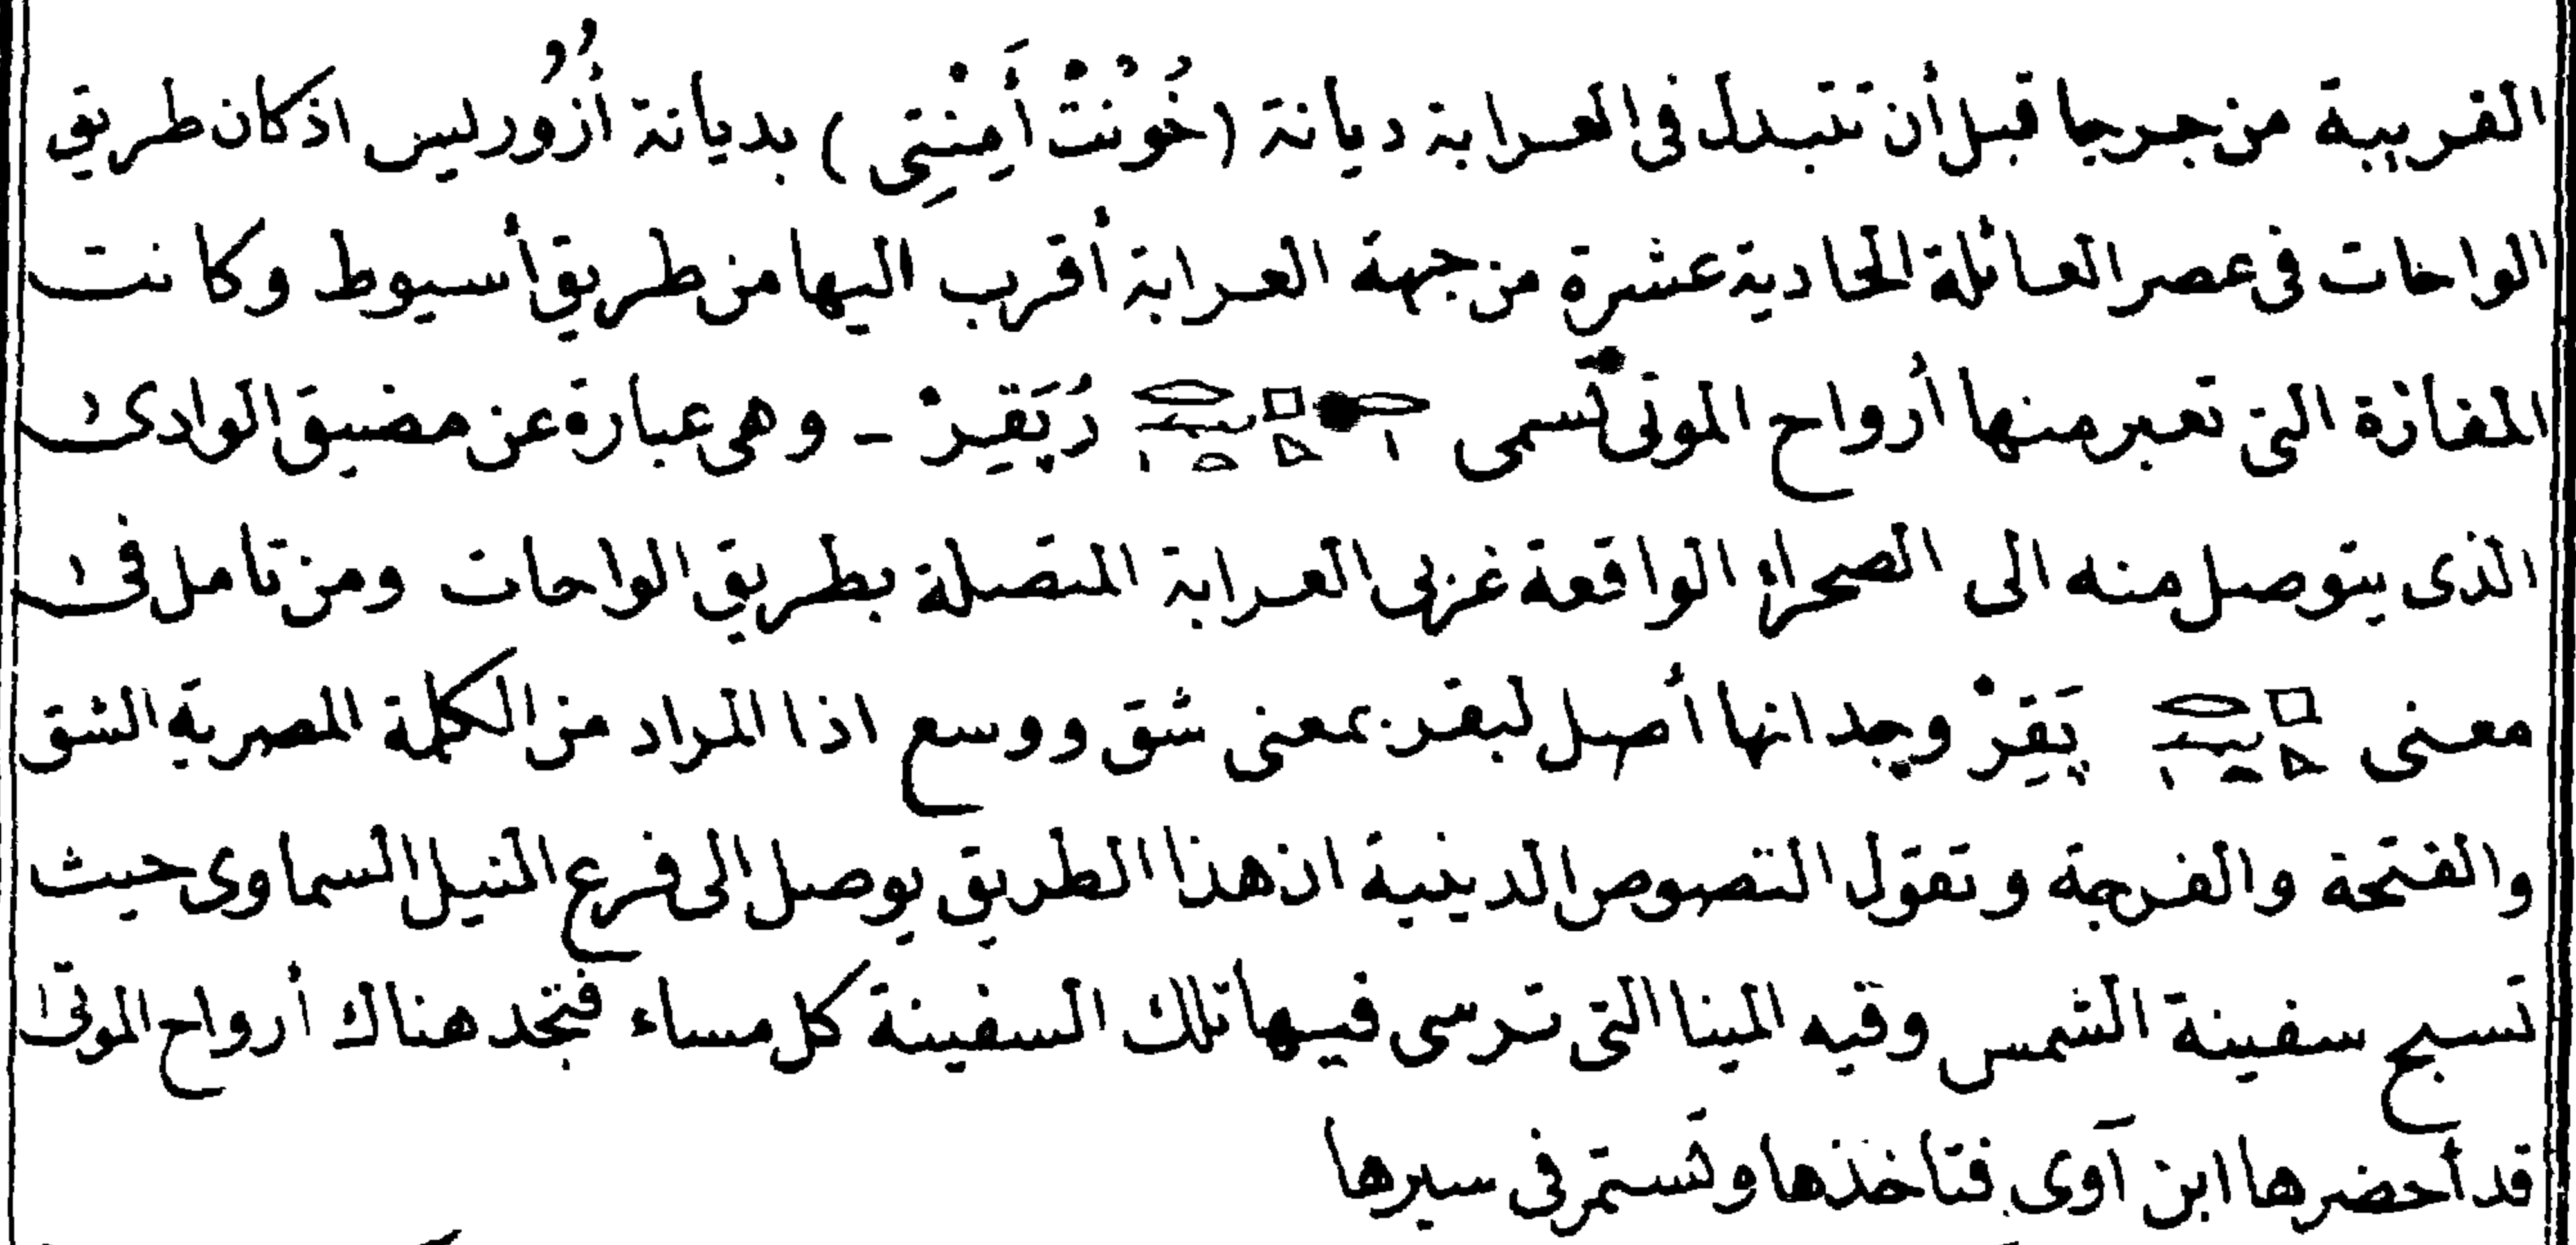 القريبة من جرجا قبل أن تتبدل فى العرابة ديانة (خُونْتْ أَمِنْتِى) بديانة أُزُورليس اذ كان طريق
الواحات فى عصر العائلة الحادية عشرة من جهة العرابة أقرب اليها من طريق أسيوط وكانت
المفازة التى تعبر منها أرواح الموتى تسمى رُپَقِرْ - وهى عبارة عن مضيق الوادى
الذى يتوصل منه الى الصحراء الواقعة غربى العرابة المتصلة بطريق الواحات ومن تامل فى
معنى پَقِرْ وجد انها أصل لبقر بمعنى شق ووسع اذا المراد من الكلمة المصرية الشق
والفتحة والفرجة وتقول النصوص الدينية ان هذا الطريق يوصل الى فرع النيل السماوى حيث
تسبح سفينة الشمس وفيه المينا التى ترسى فيها تلك السفينة كل مساء فتجد هناك أرواح الموتى
قد أحضرها ابن آوى فتاخذها وتستمر فى سيرها